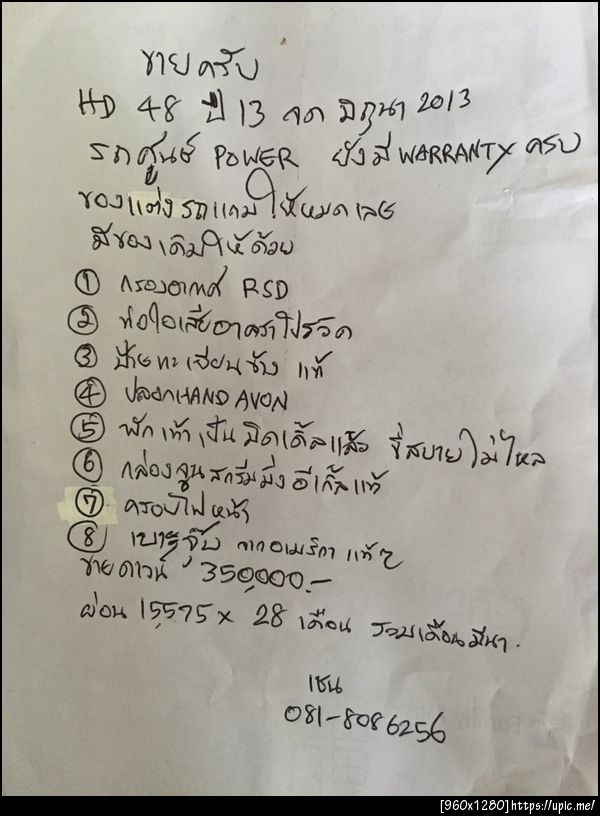 ขายครับ
HD 48 ปี 13 จด มิถุนา 2013
รถศูนย์ POWER ยังมี WARRANTY ครับ
ของแต่งรถแถมให้หมดเลย
มีของเดิมให้ด้วย
① กรองอากาศ RSD
② ท่อไอเสียอาคราโปวิค
③ ป้ายทะเบียนข้าง แท้
④ ปลอกHAND AVON
⑤ พักเท้าเป็นมิดเดิ้ลแล้ว ขี่สบายไม่ไหล
⑥ กล่องจูนสกรีมมิ่งอีเกิ้ลแท้
⑦ ครอบไฟหน้า
⑧ เบาะจุ๊บ จากอเมริกา แท้ๆ
ขายดาวน์ 350,000.-
ผ่อน 15,575 x 28 เดือน รวมเดือนมีนา.
เชน
081-8086256
[960x1280]https://upic.me/